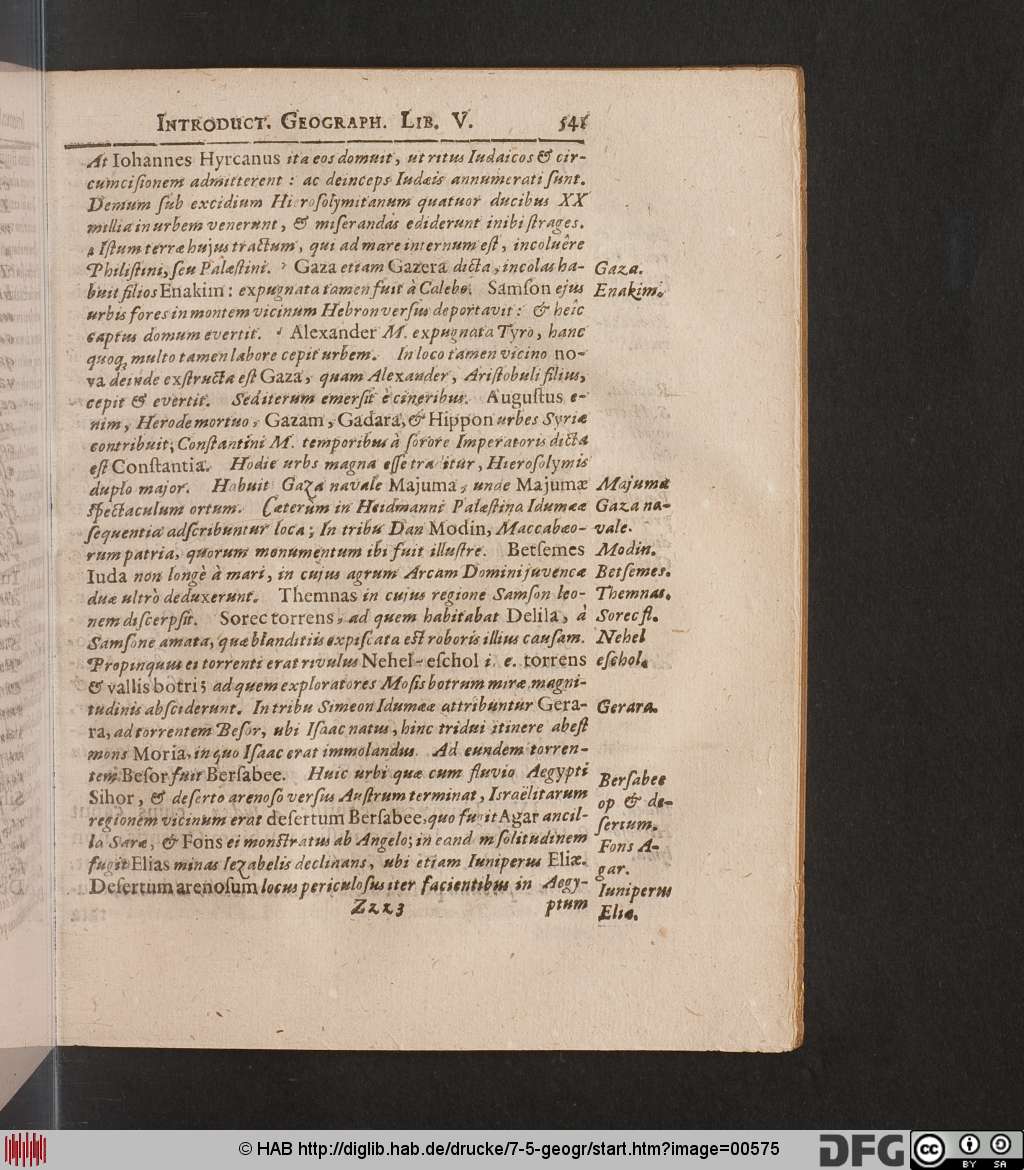 INTRODUCT. GEOGRAPH. LIB. V. 541
At Iohannes Hyrcanus ita eos domuit, ut ritus Iudaicos & cir-
cumcisionem admitterent : ac deinceps Iudæis annumerati sunt.
Demum sub excidium Hierosolymitanum quatuor ducibus XX
millia in urbem venerunt, & miserandas ediderunt inibi strages.
Istum terræ hujus tractum, qui ad mare internum est, incoluêre
Philistini, seu Palæstini. Gaza etiam Gazera dicta, incolas ha- Gaza.
buit filios Enakim : expugnata tamen fuit à Calebo. Samson ejus Enakim.
urbis fores in montem vicinum Hebron versus deportavit : & heîc
captus domum evertit. Alexander M. expugnata Tyro, hanc
quoq; multo tamen labore cepit urbem. In loco tamen vicino no-
va deinde exstructa est Gaza, quam Alexander, Aristobuli filius,
cepit & evertit. Sed iterum emersit è cineribus. Augustus e-
nim, Herode mortuo, Gazam, Gadara, & Hippon urbes Syriæ
contribuit; Constantini M. temporibus à sorore Imperatoris dicta
est Constantia. Hodie urbs magna esse traditur, Hierosolymis
duplo major. Habuit Gaza navale Majuma, unde Majumæ Majuma
spectaculum ortum. Cæterùm in Heidmanni Palæstina Idumææ Gaza na-
sequentia adscribuntur loca; In tribu Dan Modin, Maccabæo- vale.
rum patria, quorum monumentum ibi fuit illustre. Betsemes Modin.
Iuda non longè à mari, in cujus agrum Arcam Domini juvencæ Betsemes.
duæ ultrò deduxerunt. Themnas in cujus regione Samson leo- Themnas.
nem discerpsit. Sorec torrens, ad quem habitabat Delila, à Sorec fl.
Samsone amata, quæ blanditiis expiscata est roboris illius causam. Nehel
Propinquus ei torrenti erat rivulus Nehel-eschol i. e. torrens eschol.
& vallis botri; ad quem exploratores Mosis botrum miræ magni-
tudinis absciderunt. In tribu Simeon Idumææ attribuntur Gera- Gerara.
ra, ad torrentem Besor, ubi Isaac natus, hinc tridui itinere abest
mons Moria, in quo Isaac erat immolandus. Ad eundem torren-
tem Besor fuit Bersabee. Huic urbi quæ cum fluvio Aegypti Bersabee
Sihor, & deserto arenoso versus Austrum terminat, Israëlitarum op & de-
regionem vicinum erat desertum Bersabee, quo fugit Agar ancil- sertum.
la Saræ, & Fons ei monstratus ab Angelo; in eandem solitudinem Fons A-
fugit Elias minas Iezabelis declinans, ubi etiam Iuniperus Eliæ. gar.
Desertum arenosum locus periculosus iter facientibus in Aegy- Iuniperus
Zzz3 ptum Eliæ.
© HAB http://diglib.hab.de/drucke/7-5-geogr/start.htm?image=00575
DFG
cc BY SA